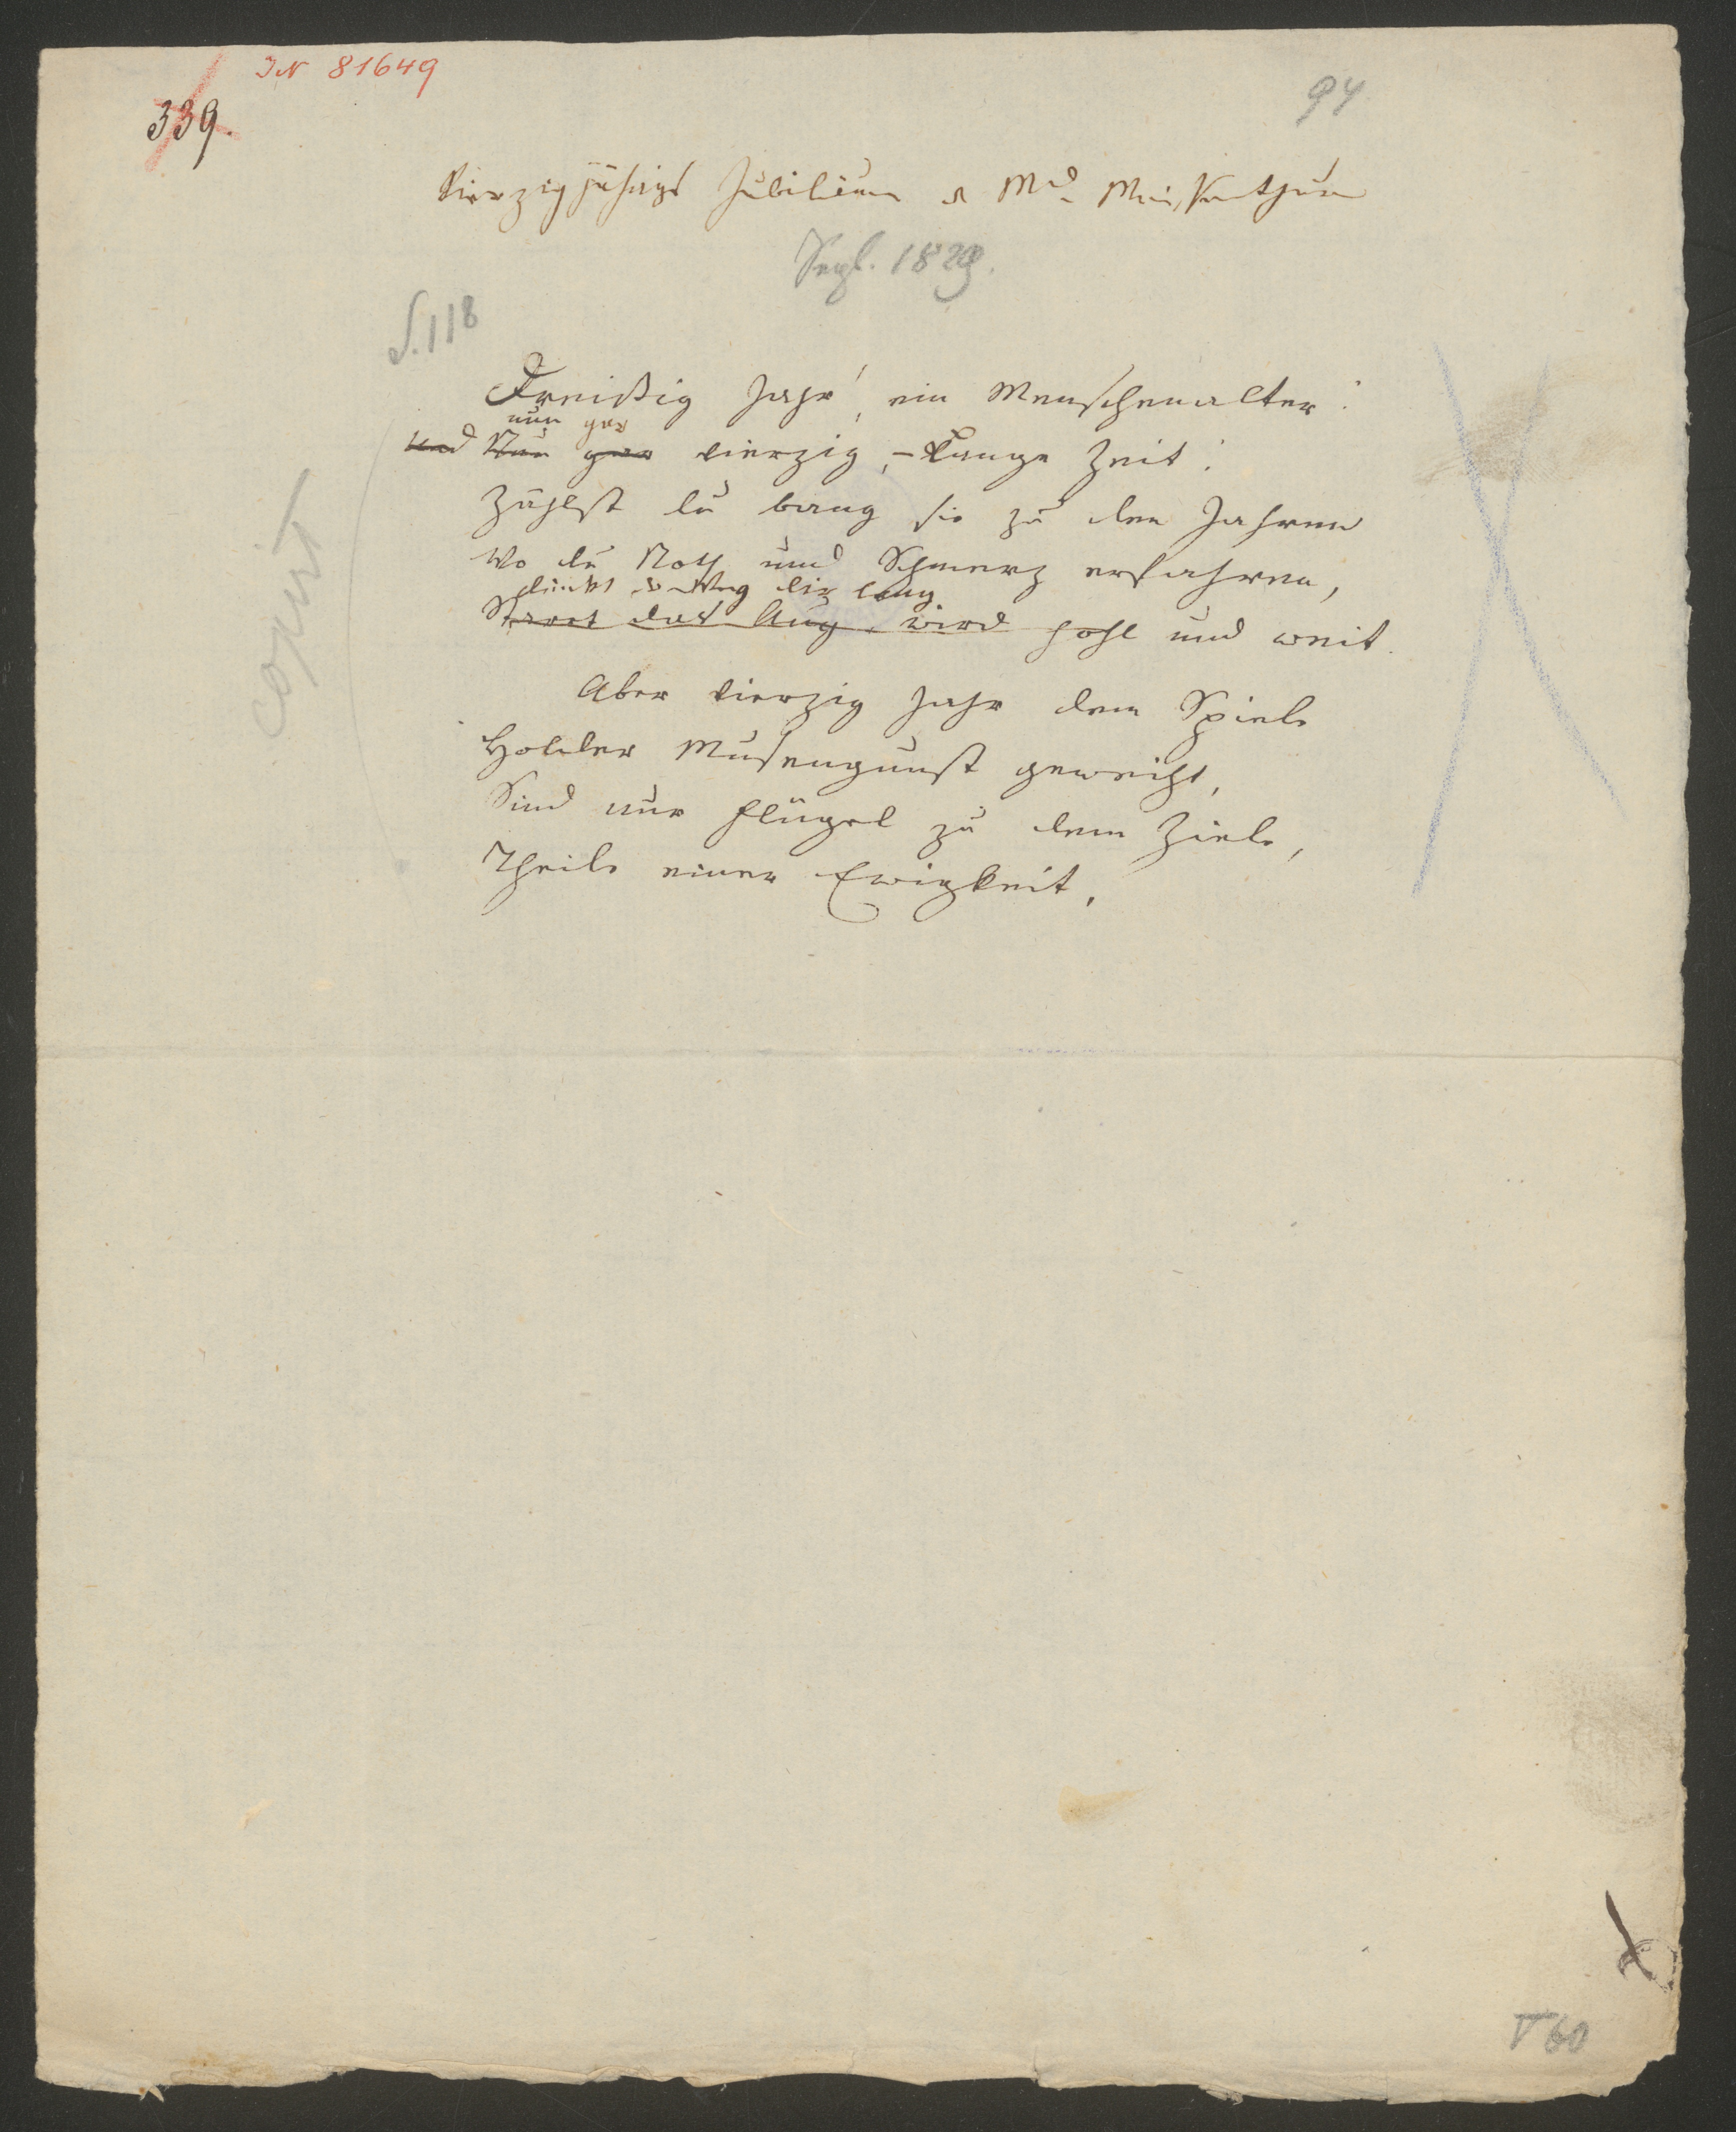 IN 81649
339.
94
Vierzigjähriges Jubiläum d Md Weißenthurn
Sept. 1829.
S. 118
Dreißig Jahr', ein Menschenalter!
nun gar
und Nun gar vierzig, – lange Zeit!
Zählst du bang sie zu den Jahren
Wo du Noth und Schmerz erfahren,
dünkt der Weg dir lang
Starrt das Aug, wird hohl und weit.
Aber vierzig Jahr dem Spiele
Holder Musengunst geweiht,
Sind nur Flügel zu dem Ziele,
Theile einer Ewigkeit.
copirt
V 60